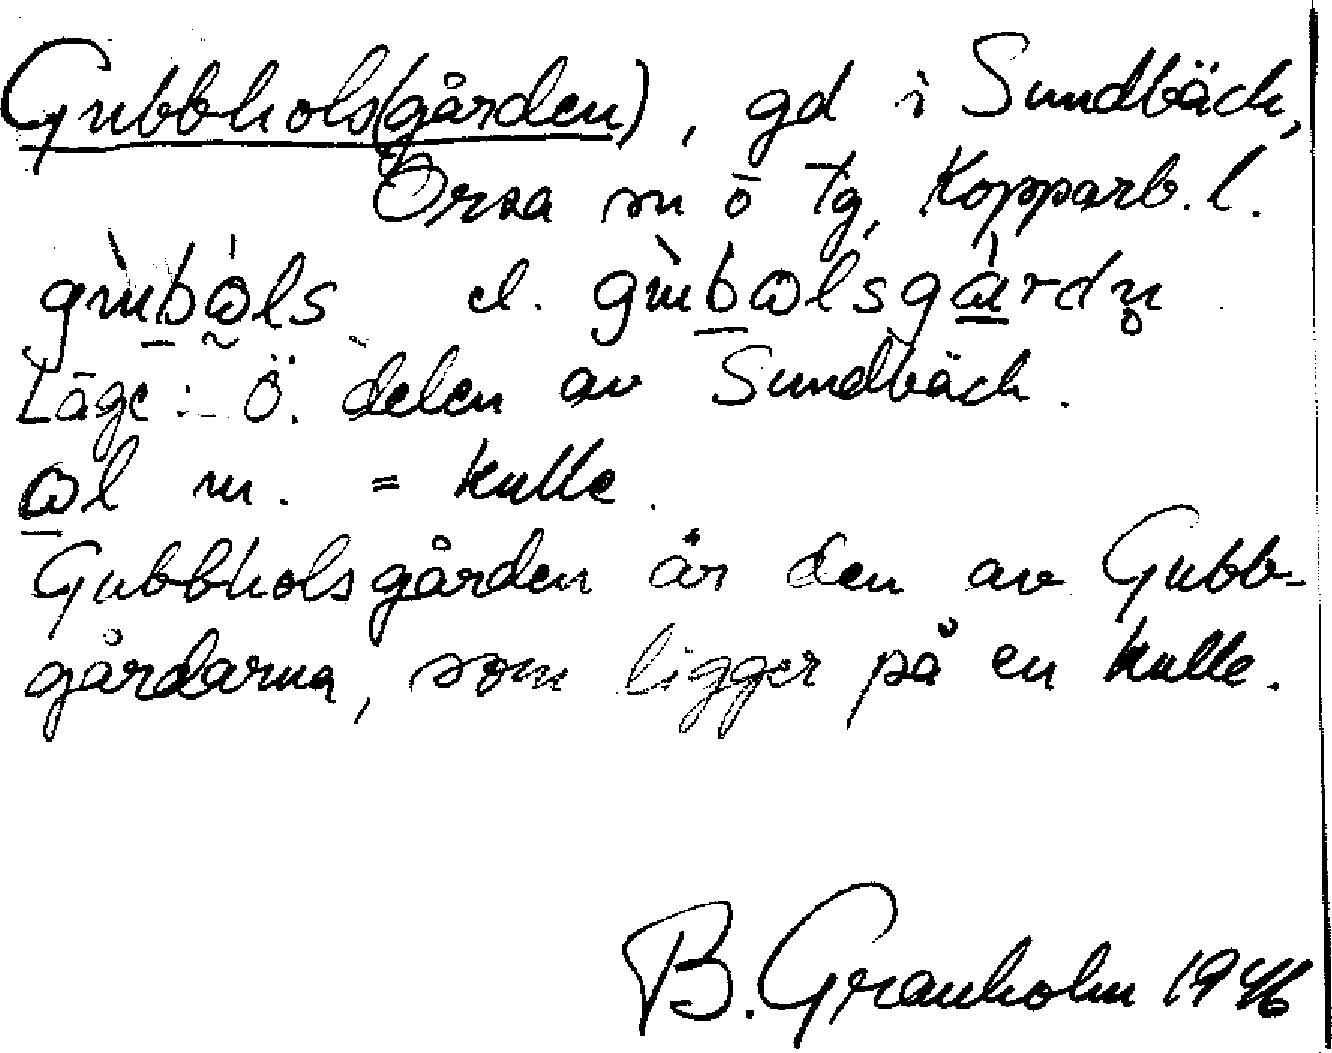 Gubbhols(gården), gd i Sundbäck,
Orsa sn o tg, Kopparb. l.
gùbɷ́ls el. gùbɷlsgàrdn̥
Läge: Ö. delen av Sundbäck.
ɷl m. = kulle.
Gubbholsgården är den av Gubb-
gårdarna, som ligger på en kulle.
B. Granholm 1946